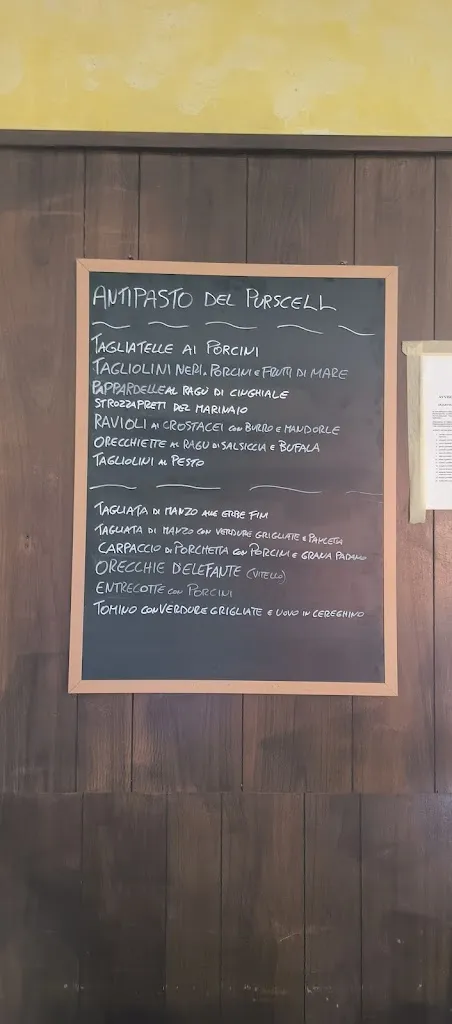 ANTIPASTO DEL PURSCELL
TAGLIATELLE AI PORCINI
TAGLIOLINI NERI. PORCINI E FRUTTI DI MARE
PAPPARDELLE AL RAGÙ DI CINGHIALE
STROZZAPRETI DEL MARINAIO
RAVIOLI AI CROSTACEI CON BURRO E MANDORLE
ORECCHIETTE AL RAGÙ DI SALSICCIA E BUFALA
TAGLIOLINI AL PESTO
TAGLIATA DI MANZO ALLE ERBE FINI
TAGLIATA DI MANZO CON VERDURE GRIGLIATE E PANCETTA
CARPACCIO DI PORCHETTA CON PORCINI E GRANA PADANO
ORECCHIE D'ELEFANTE (VITELLO)
ENTRECOTTE CON PORCINI
TOMINO CON VERDURE GRIGLIATE E UOVO IN CEREGHINO